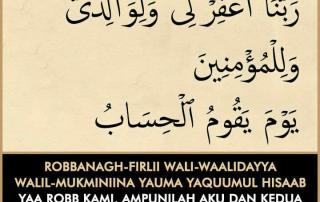 رَبَّنَا اغْفِرْ لِى وَلِوَالِدَىَّ
وَلِلْمُؤْمِنِينَ
يَوْمَ يَقُومُ الْحِسَابُ
ROBBANAGH-FIRLII WALI-WAALIDAYYA
WALIL-MUKMINIINA YAUMA YAQUUMUL HISAAB
YAA ROBB KAMI, AMPUNILAH AKU DAN KEDUA